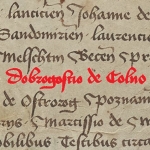 lancicien Johanne de
Sandomirien laurencio
Melschtin Becen
Dobrogostio de Colno
de Ostrorog Spoznan
Marcissio de
nobilibus Testibus circa